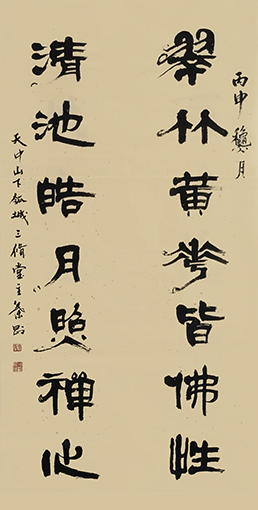 丙申龝月
翠竹黄花皆佛性
清池皓月照禪心
天中山下瓠城三脩堂主